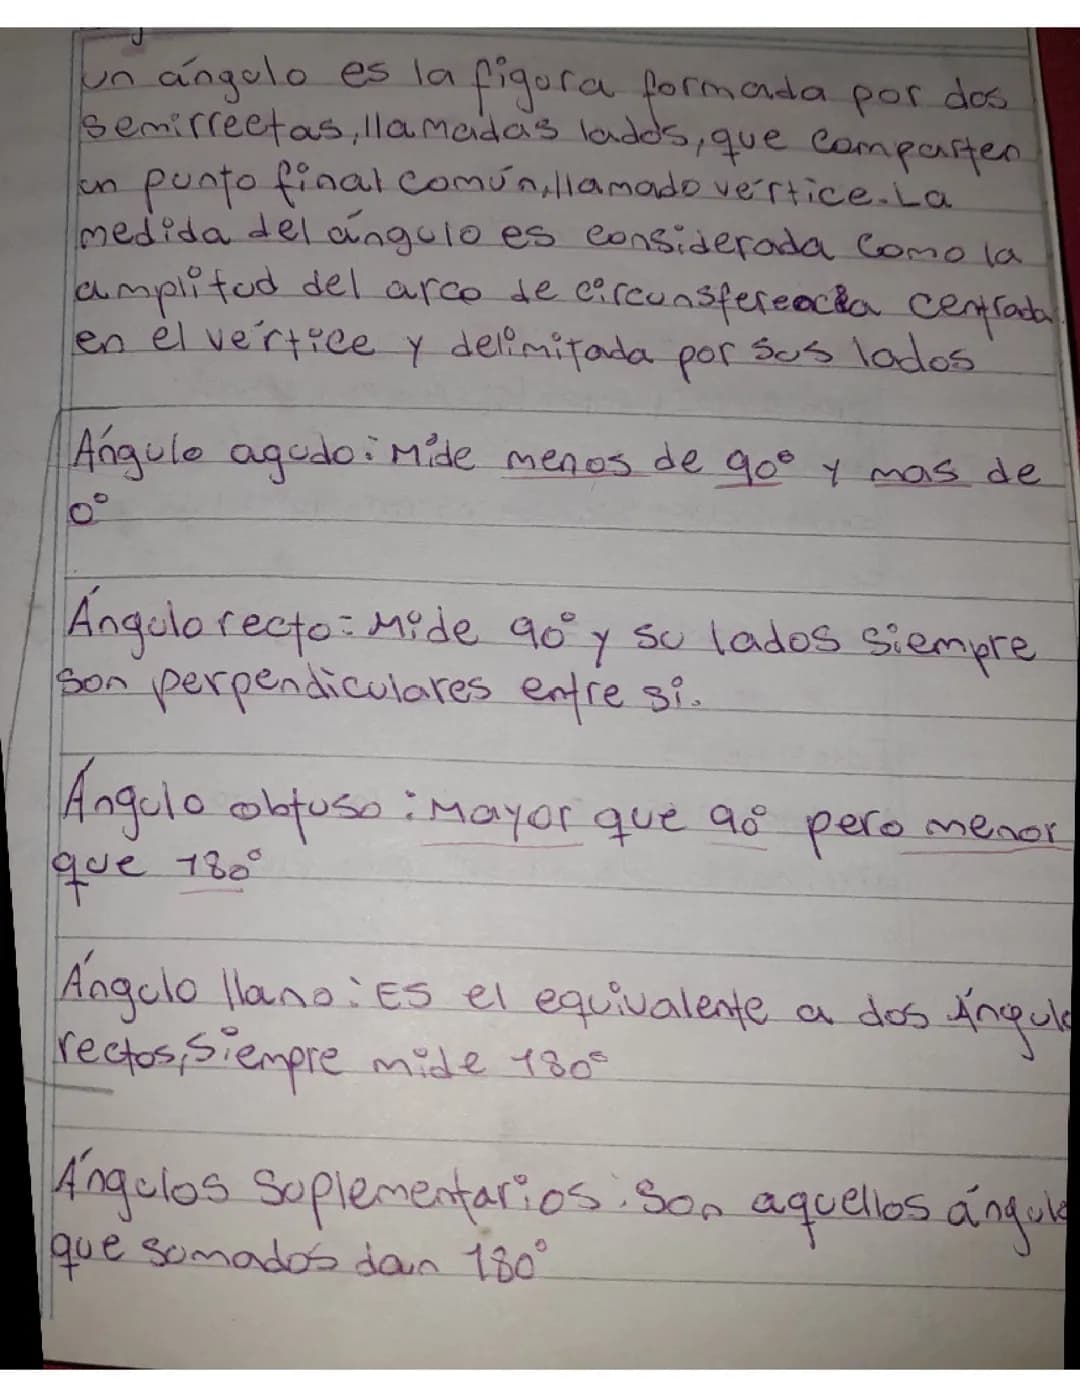 un ángulo es la figura formada por dos
semirrectas, llamadas lados, que comparten
un punto final común, llamado vértice. La
medida del ángulo es considerada como la
amplitud del arco de centrada
en el vértice y delimitada por sus lados
Ángulo agudo: Mide menos de 90° y mas de
0°
Ángulo recto: Mide 90° y su lados siempre
son perpendiculares entre si.
Ángulo obtuso: Mayor que 90° pero menor
que 180°
Ángulo llano: Es el equivalente a dos Ángulo
rectos, siempre mide 180°
Ángulos Suplementarios: Son aquellos ángulo
que somados dan 180°